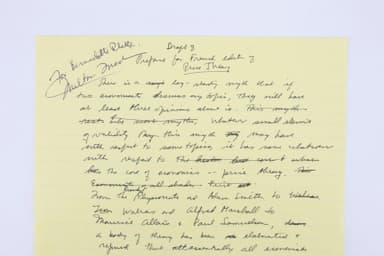 Draft 3
For Bernadette Platte
Milton Fried
Preface for French edit of
Price Theory
There is a long-standing myth that if
two economists discuss any topic, they will have
at least three opinions about it. This myth
whatever small element
of validity this myth may have
with respect to some topics, it has none whatsoever
with respect to
the core of economics — price theory.
Economists of all shades
From the Physiocrats and Adam Smith to Walras
From Walras and Alfred Marshall to
Maurice Allais & Paul Samuelson,
a body of theory has been elaborated &
refined that essentially all economists